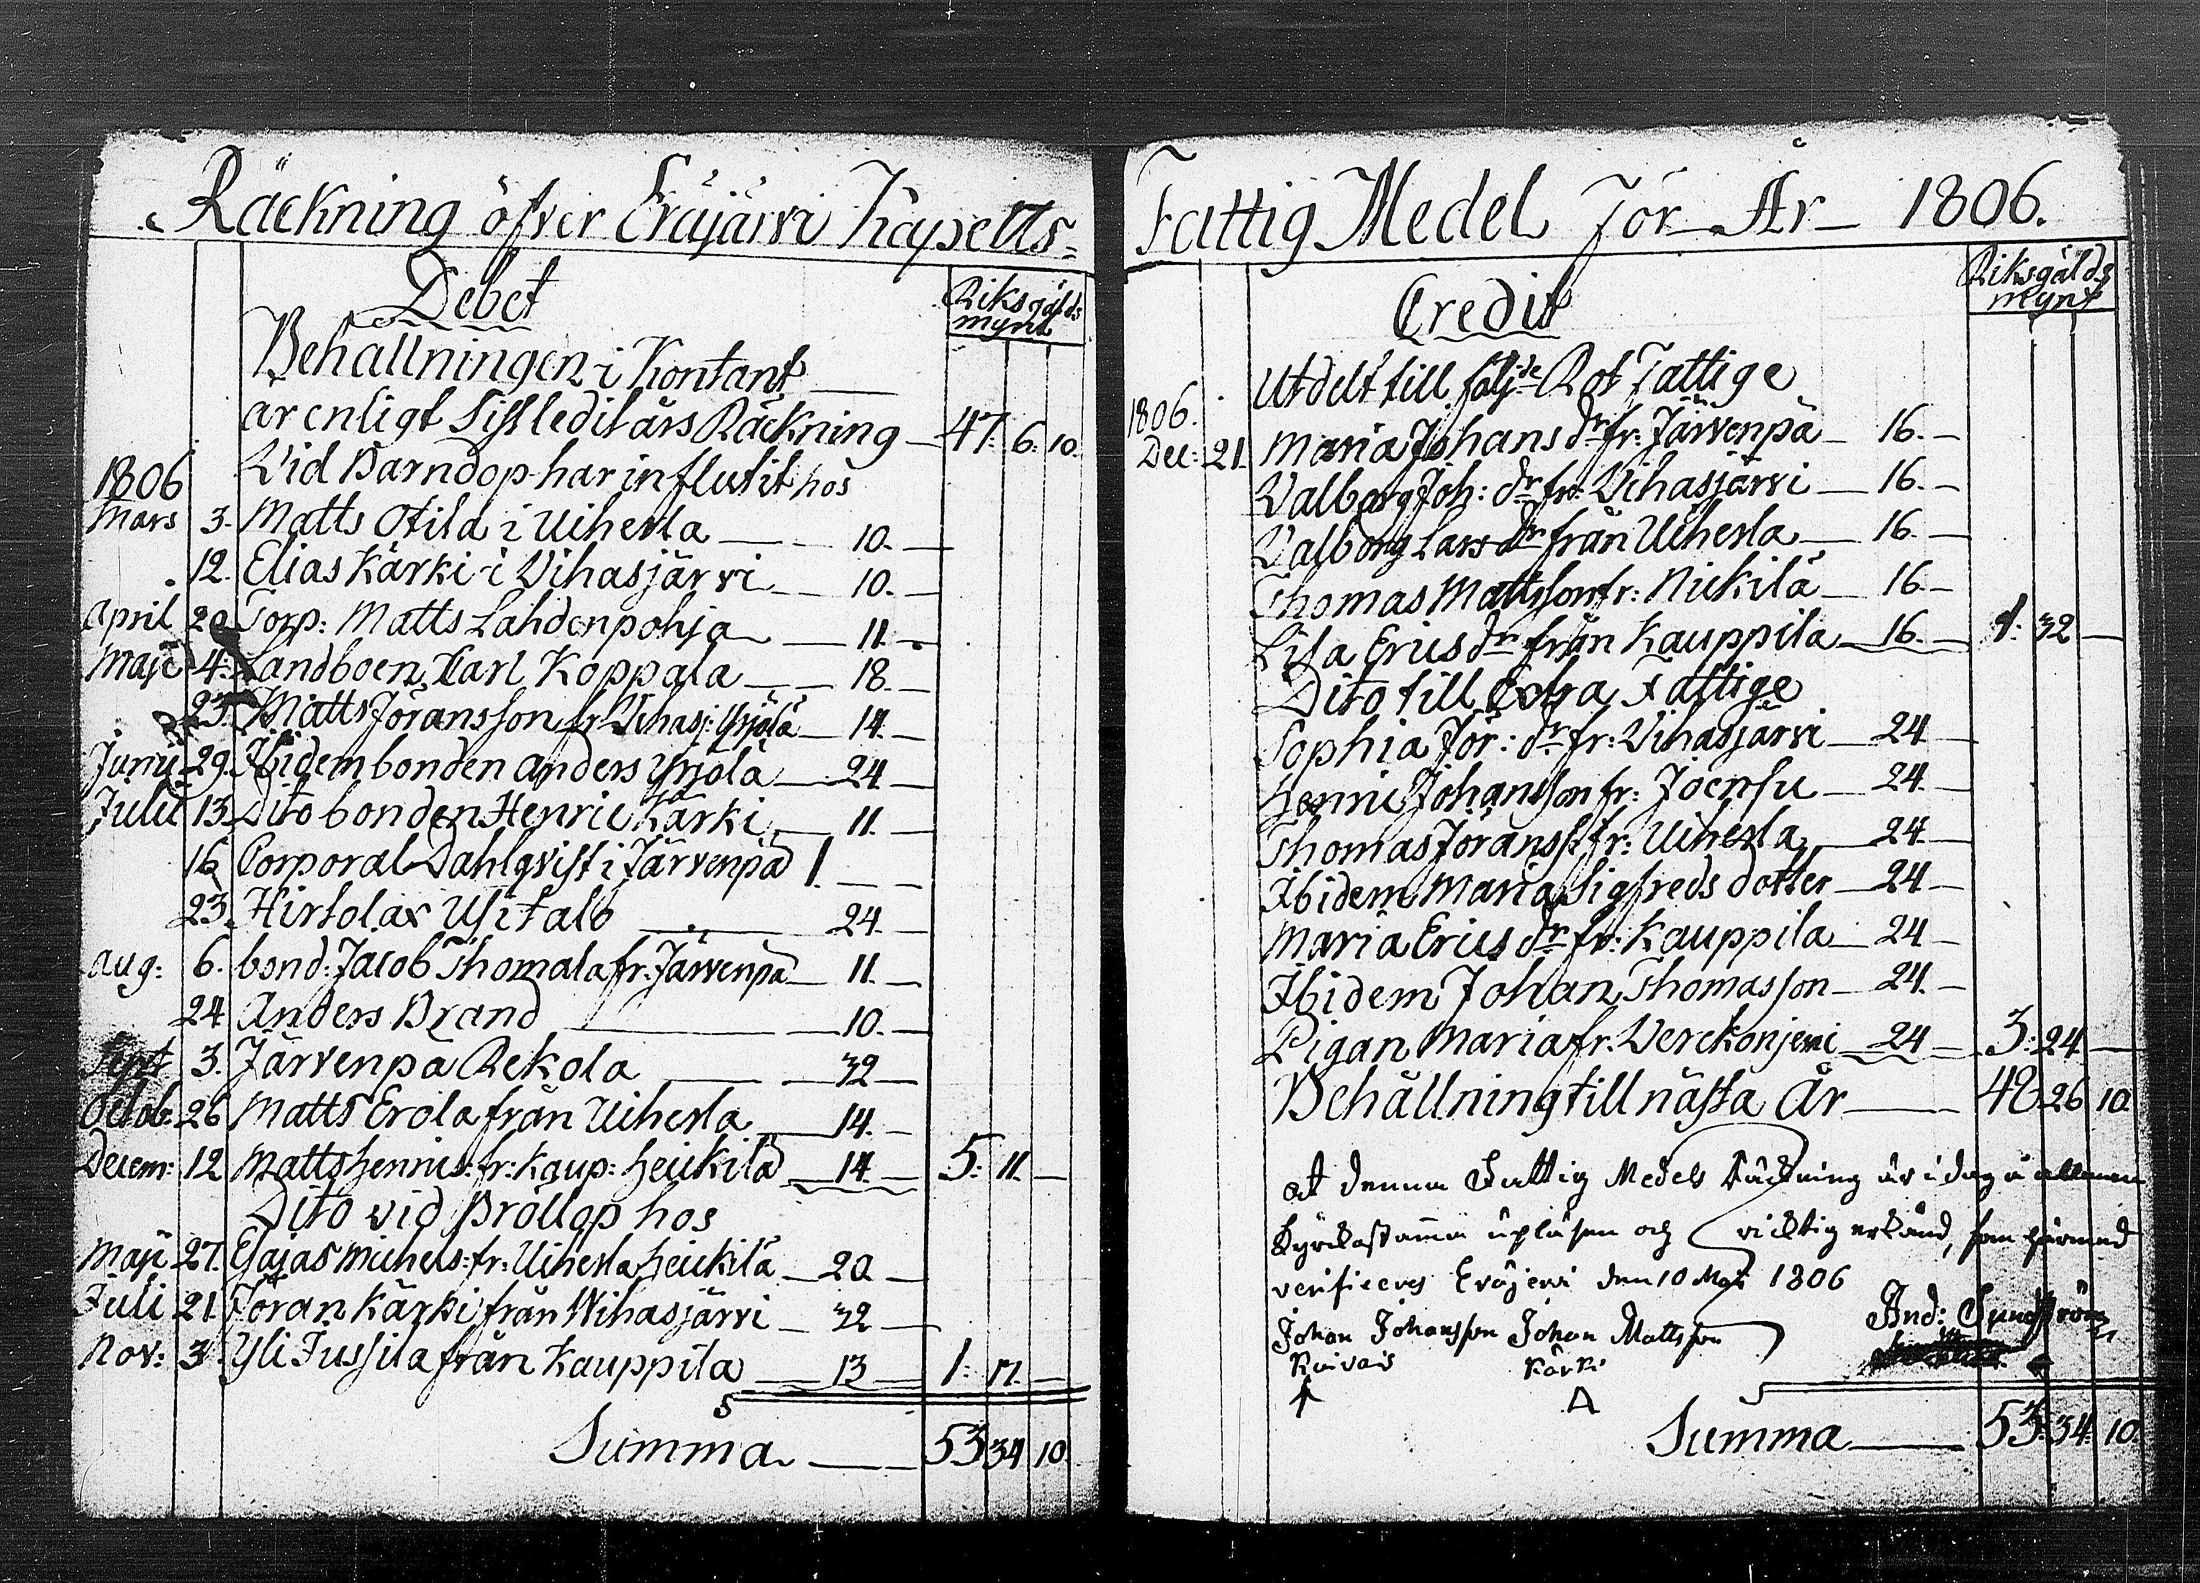 Räckning öfver Eräjärvi Kapells-
Debet
Riksgälds
mynt
Behållningen i Kontant
är enligt Sistledit års Räckning 47. 6. 10.
1806 Vid Barndop har influtit hos
Mars 3. Matts Otila i Uiherla 10.
12. Elias Kärki i Vihasjärvi 10.
April 20 Torp: Matts Lahdenpohja 11.
Maji 4. Landboen Carl Koppala 18.
23. Matts Jöransson fr. Vihasj: Yrjölä 14.
Junii 29. Ibidem bonden Anders Yrjölä 24
Julii 13 Dito bonden Henric Kärki 11.
16 Corporal Dahlqvist i Järvenpä 1.
23. Hirtolax Usitalo 24.
Aug: 6. bond: Jacob Thomala fr. Järvenpä 11.
24 Anders Brand 10.
Sept 3. Järvenpä Rekola 32
Octob: 26 Matts Erola från Uiherla 14.
Decem: 12 Matts Henrics: fr: Kaup: Heickilä 14. 5. 11.
Dito vid Bröllop hos
Maji 27. Esajas Michels: fr: Uiherla Heickilä 20
Juli 21 Jöran Kärki från Wihasjärvi 32
Nov: 3. Yli Jussila från Kauppila 13 1. 17.
Summa 53 34 10.
Fattig Medel för År 1806.
Credit
Riksgälds
mynt
Utdelt till följde Rot Fattige
1806.
Dec: 21. Maria Johans dr fr: Järvenpä 16.
Valborg Joh: dr fr: Vihasjärvi 16.
Valborg Lars dr från Uiherla 16.
Thomas Mattsson fr: Nickilä 16.
Lisa Erics dr från Kauppila 16. 1. 32
Dito till Extra fattige
Sophia Jör: dr fr: Vihasjärvi 24
Henric Johansson fr: Joensu 24.
Thomas Jöranss: fr: Uiherla 24.
Ibidem Maria Sigfreds dotter 24
Maria Erics dr fr: Kauppila 24
Ibidem Johan Thomasson 24.
Pigan Maria fr. Verckonjemi 24 3. 24
Behållning till nästa År 48 26 10
At denna Fattig Medels Räckning är i dag å allmän
Kyrckostämma upläsen och richtig erkänd, som härmed
verificeras Eräjervi den 10 Maji 1806
Johan Johansson Johan Mattsson And: Sundström
Kärki
Summa 53. 34. 10.